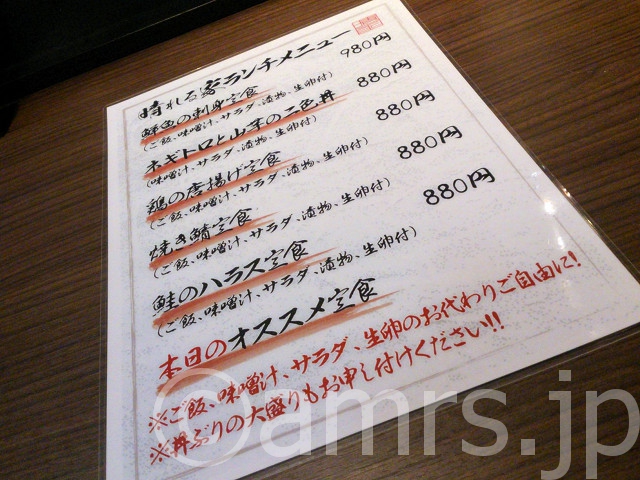 晴れる家ランチメニュー
鮮魚の刺身定食 980円
(ご飯、味噌汁、サラダ、漬物、生卵付)
ネギトロと山芋の二色丼 880円
(味噌汁、サラダ、漬物、生卵付)
鶏の唐揚げ定食 880円
(ご飯、味噌汁、サラダ、漬物、生卵付)
焼き鯖定食 880円
(ご飯、味噌汁、サラダ、漬物、生卵付)
鮭のハラス定食 880円
(ご飯、味噌汁、サラダ、漬物、生卵付)
本日のオススメ定食
※ご飯、味噌汁、サラダ、生卵のお代わりご自由に!
※丼ぶりの大盛りもお申し付けください!!
©amrs.jp